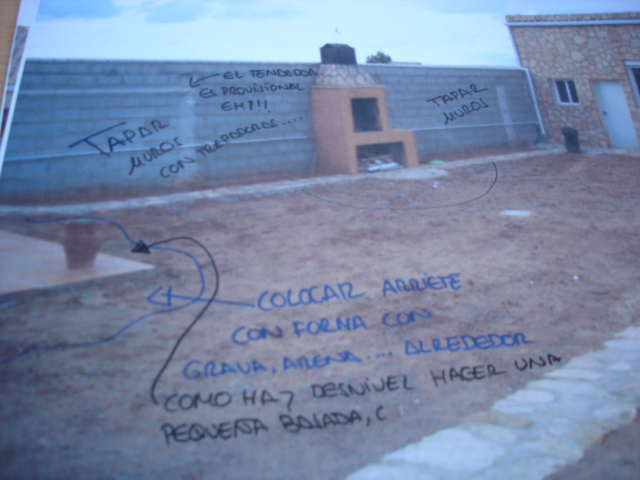 ← EL TENDEDOR
ES PROVISIONAL
EH?!!
TAPAR
MUROS
CON TREPADORAS....
TAPAR
MUROS
COLOCAR ARRIETE
CON FORMA CON
GRAVA, ARENA.... ALREDEDOR
COMO HAY DESNIVEL HACER UNA
PEQUEÑA BAJADA, C